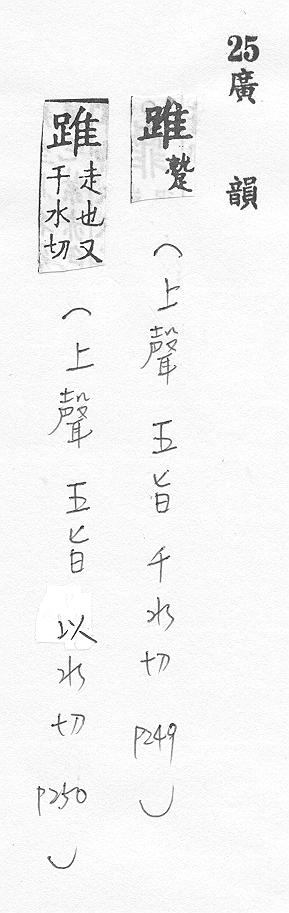 25廣韻
踓 蹵 (上聲 五旨 千水切 P249)
踓 走也又
千水切
(上聲 五旨 以水切 P250)